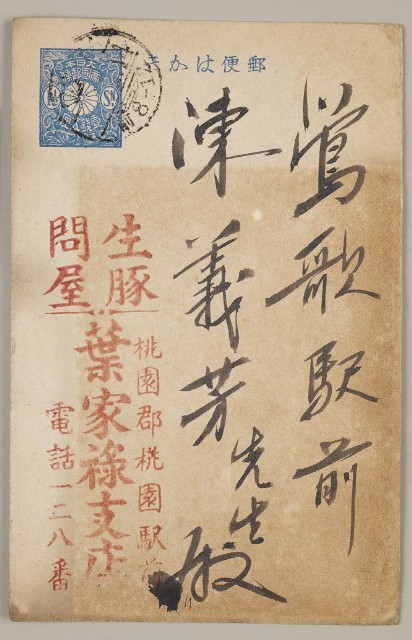 郵便はかき
鶯歌駅前
陳義芳先生殿
生豚
問屋
桃園郡桃園駅前
葉家祿支店
電話一二八番